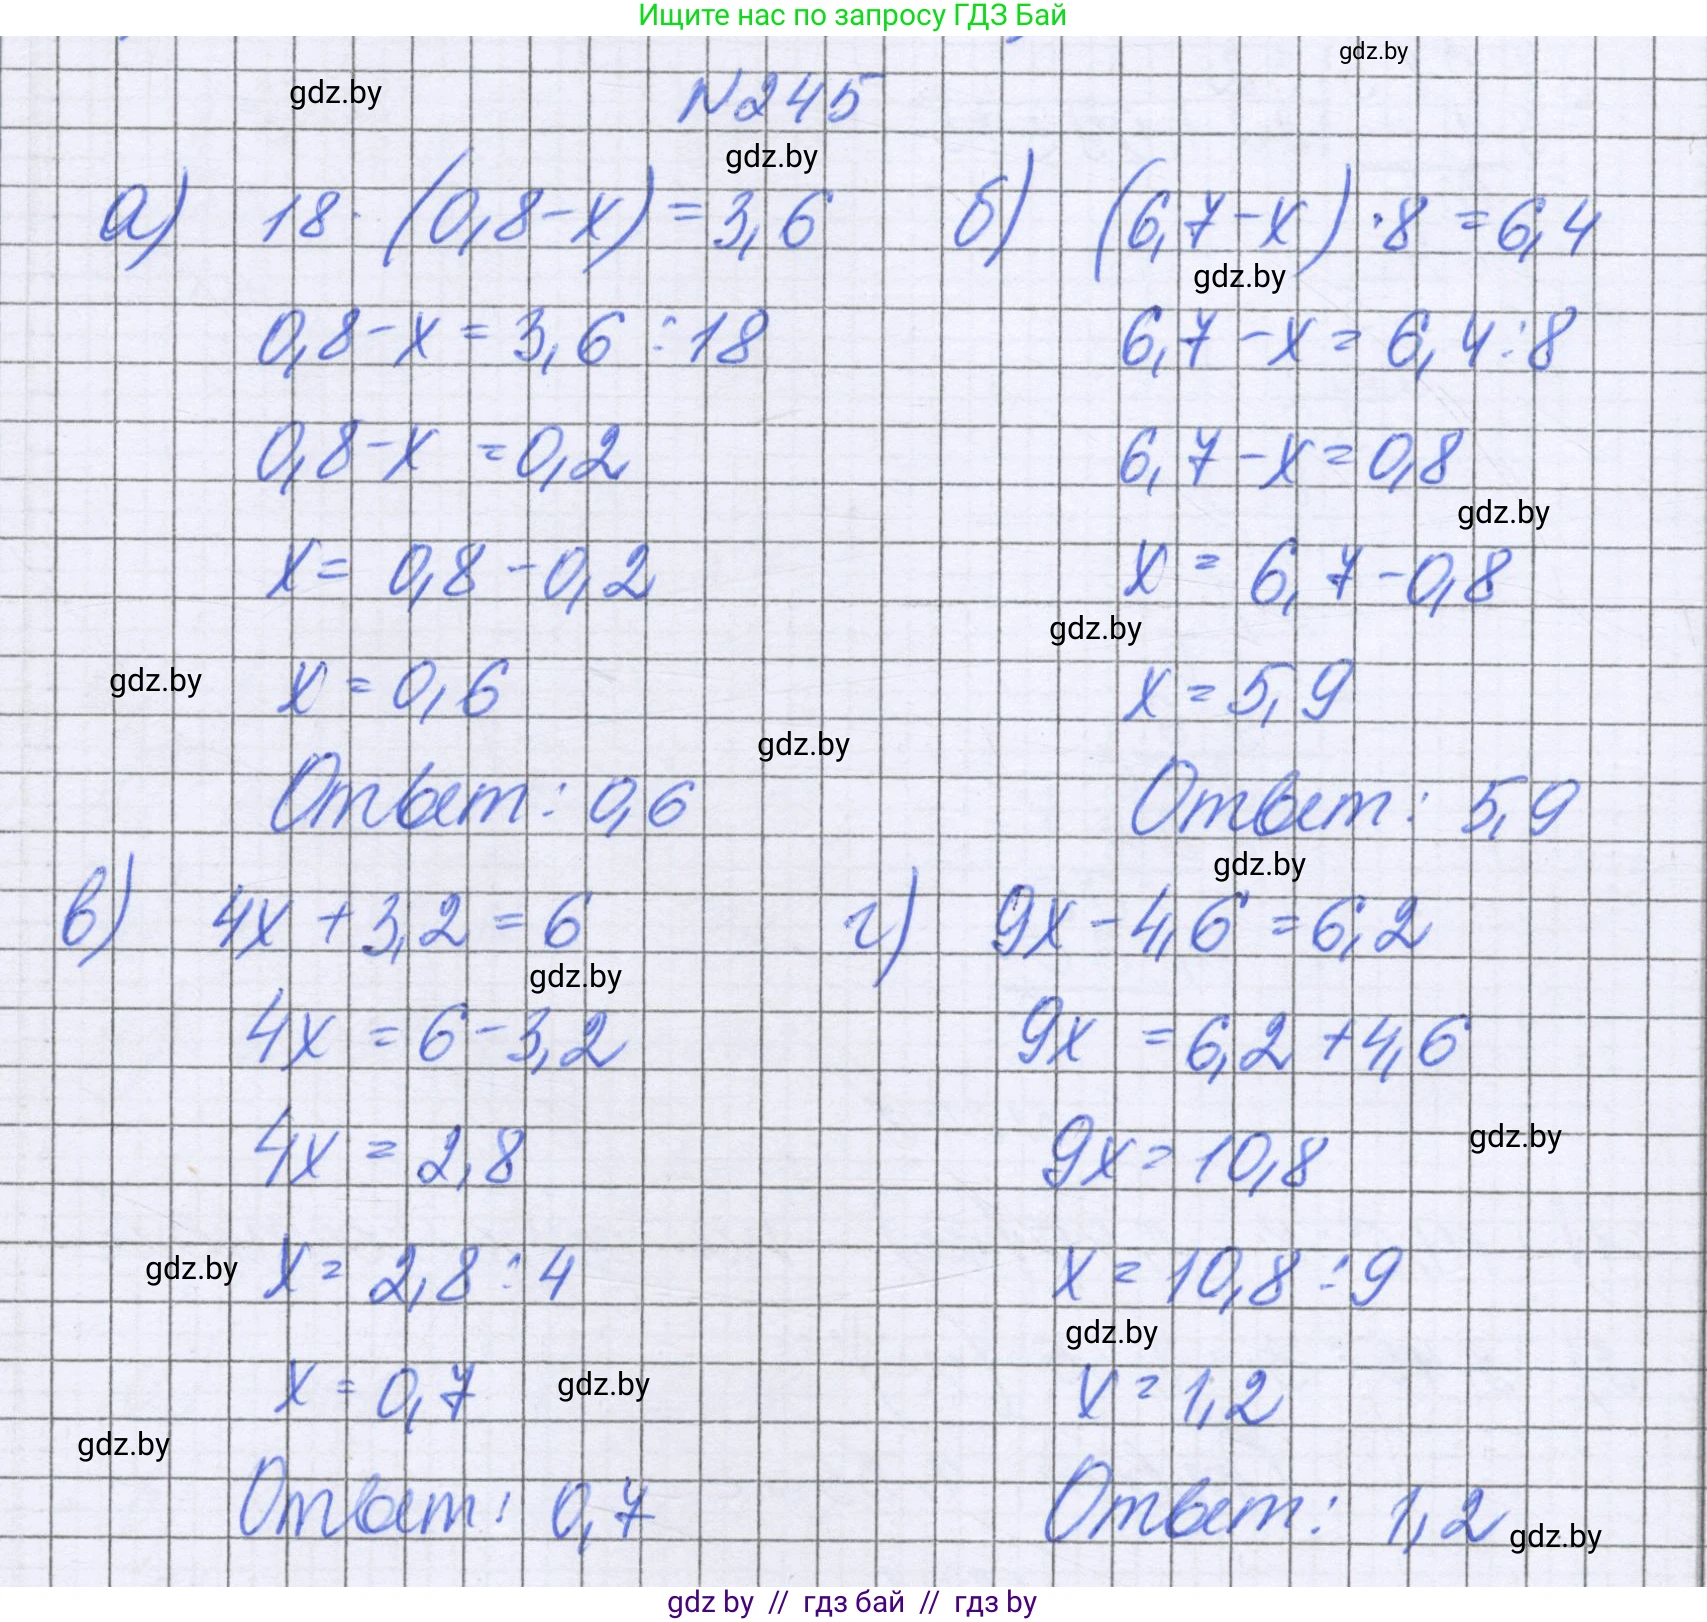 Ищите нас по запросу ГДЗ Бай
gdz.by
gdz.by
N245
gdz.by
а) 18·(0,8-х)=3,6
0,8-х=3,6:18
0,8-х=0,2
х=0,8-0,2
gdz.by
х=0,6
gdz.by
Ответ: 0,6
б) (6,7-х)·8=6,4
gdz.by
6,7-х=6,4:8
6,7-х=0,8
gdz.by
х=6,7-0,8
gdz.by
х=5,9
Ответ: 5,9
gdz.by
в) 4х+3,2=6
gdz.by
4х=6-3,2
4х=2,8
gdz.by
х=2,8:4
х=0,7
gdz.by
gdz.by
Ответ: 0,7
г) 9х-4,6=6,2
9х=6,2+4,6
9х=10,8
gdz.by
х=10,8:9
gdz.by
х=1,2
Ответ: 1,2
gdz.by
gdz by // гдз бай // гдз by